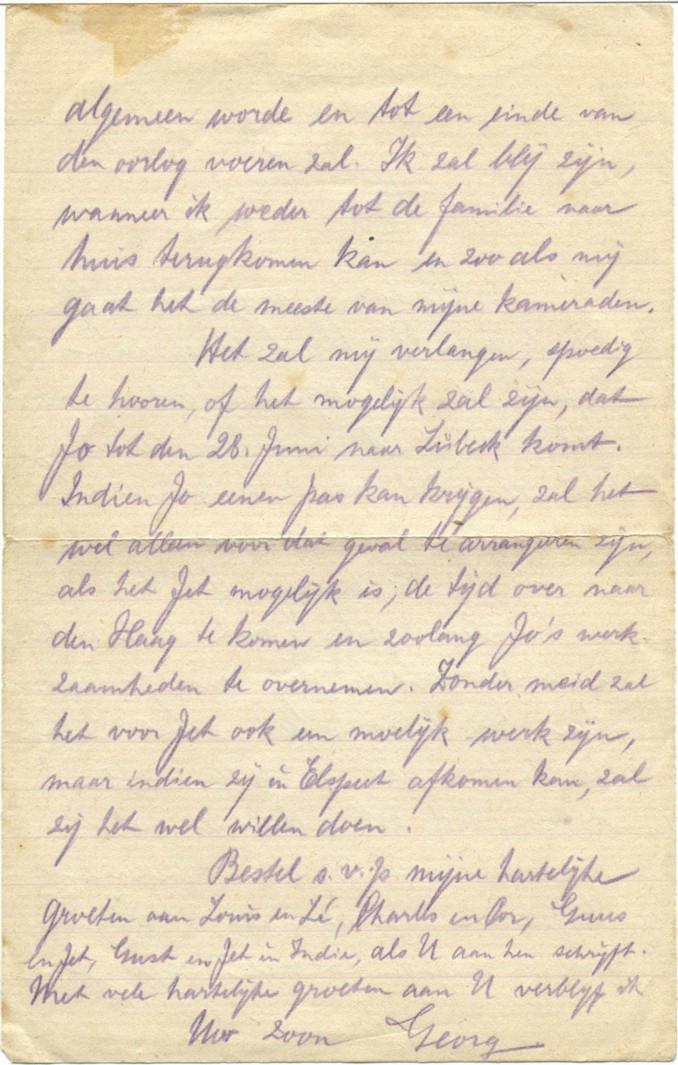 algemeen worde en tot een einde van
den oorlog voeren zal. Ik zal blij zijn,
wanneer ik weder tot de familie naar
huis terugkomen kan en zoo als mij
gaat het de meeste van mijne kameraden.
Het zal mij verlangen, spoedig
te hooren, of het mogelijk zal zijn, dat
Jo tot den 28. Juni naar Lübeck komt.
Indien Jo eenen pas kan krijgen, zal het
wel alleen voor dat geval te arrangeren zijn,
als het Jet mogelijk is, de tijd over naar
den Haag te komen en zoolang Jo's werk-
zaamheden te overnemen. Zonder meid zal
het voor Jet ook een moelijk werk zijn,
maar indien zij in Elspeet afkomen kan, zal
zij het wel willen doen.
Bestel s.v.p mijne hartelijke
groeten aan Louis en Zé, Charles en Cor, Guus
en Jet, Gust en Jet in Indie, als U aan hen schrijft.
Met vele hartelijke groeten aan U verblijf ik
Uw zoon Georg